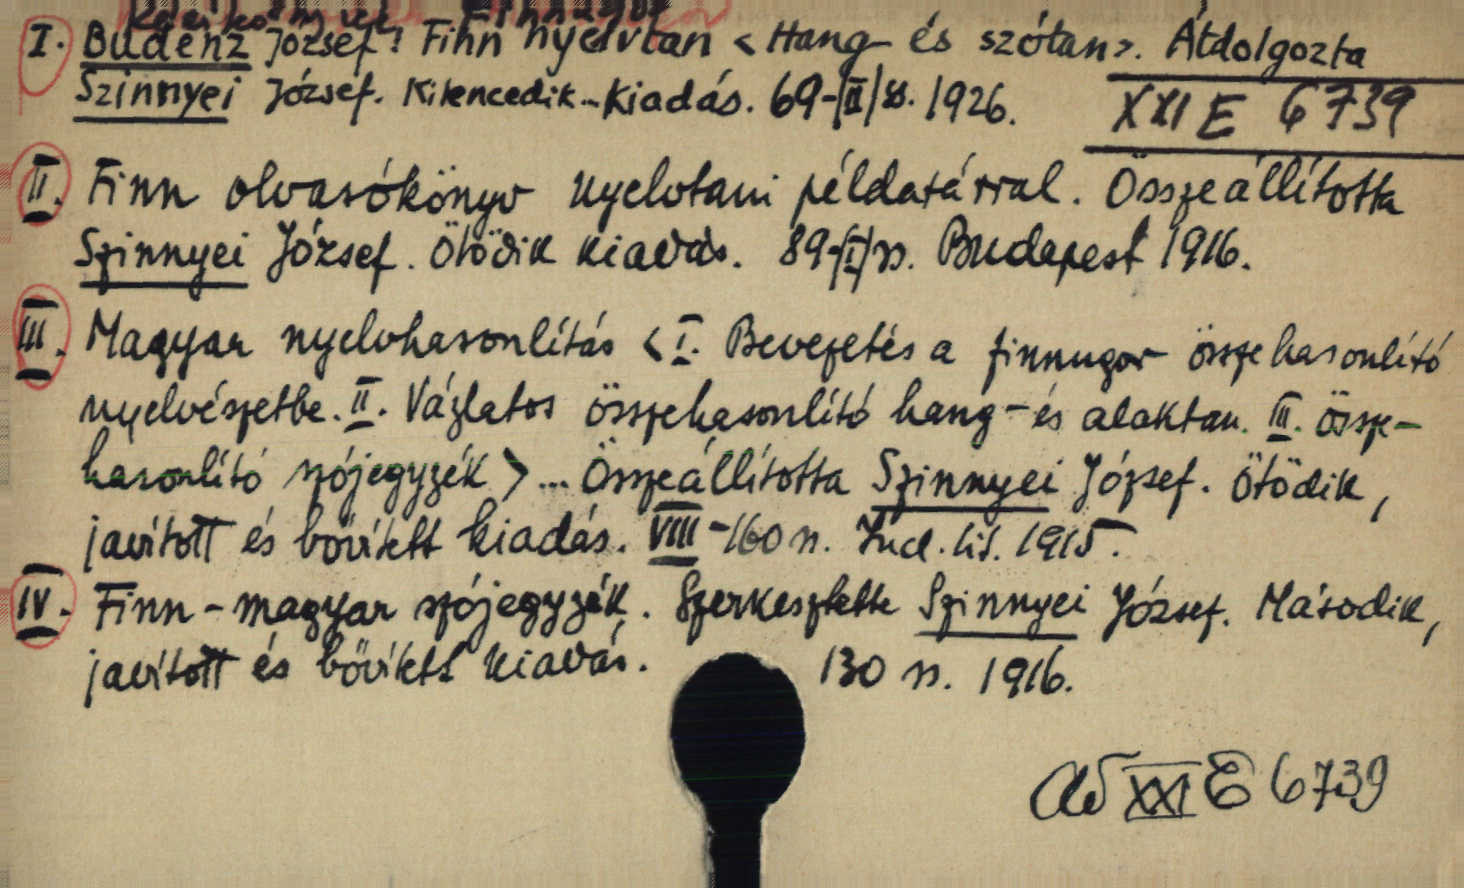 Kézikönyvek Finnugor
I. Budenz József: Finn nyelvtan <Hang- és szótan>. Átdolgozta
Szinnyei József. Kilencedik kiadás. 69-|II| s. 1926.
XXI E 6739
II. Finn olvasókönyv nyelvtani példatárral. Összeállította
Szinnyei József. Ötödik kiadás. 89-|I| s. Budapest 1916.
III. Magyar nyelvhasonlítás <I. Bevezetés a finnugor összehasonlító
nyelvészetbe. II. Vázlatos összehasonlító hang- és alaktan. III. össze-
hasonlító szójegyzék>... Összeállította Szinnyei József. Ötödik,
javított és bővített kiadás. VIII-160 s. Incl. lit. 1915.
IV. Finn-magyar szójegyzék. Szerkesztette Szinnyei József. Második,
javított és bővített kiadás. 130 s. 1916.
Ad XXI E 6739